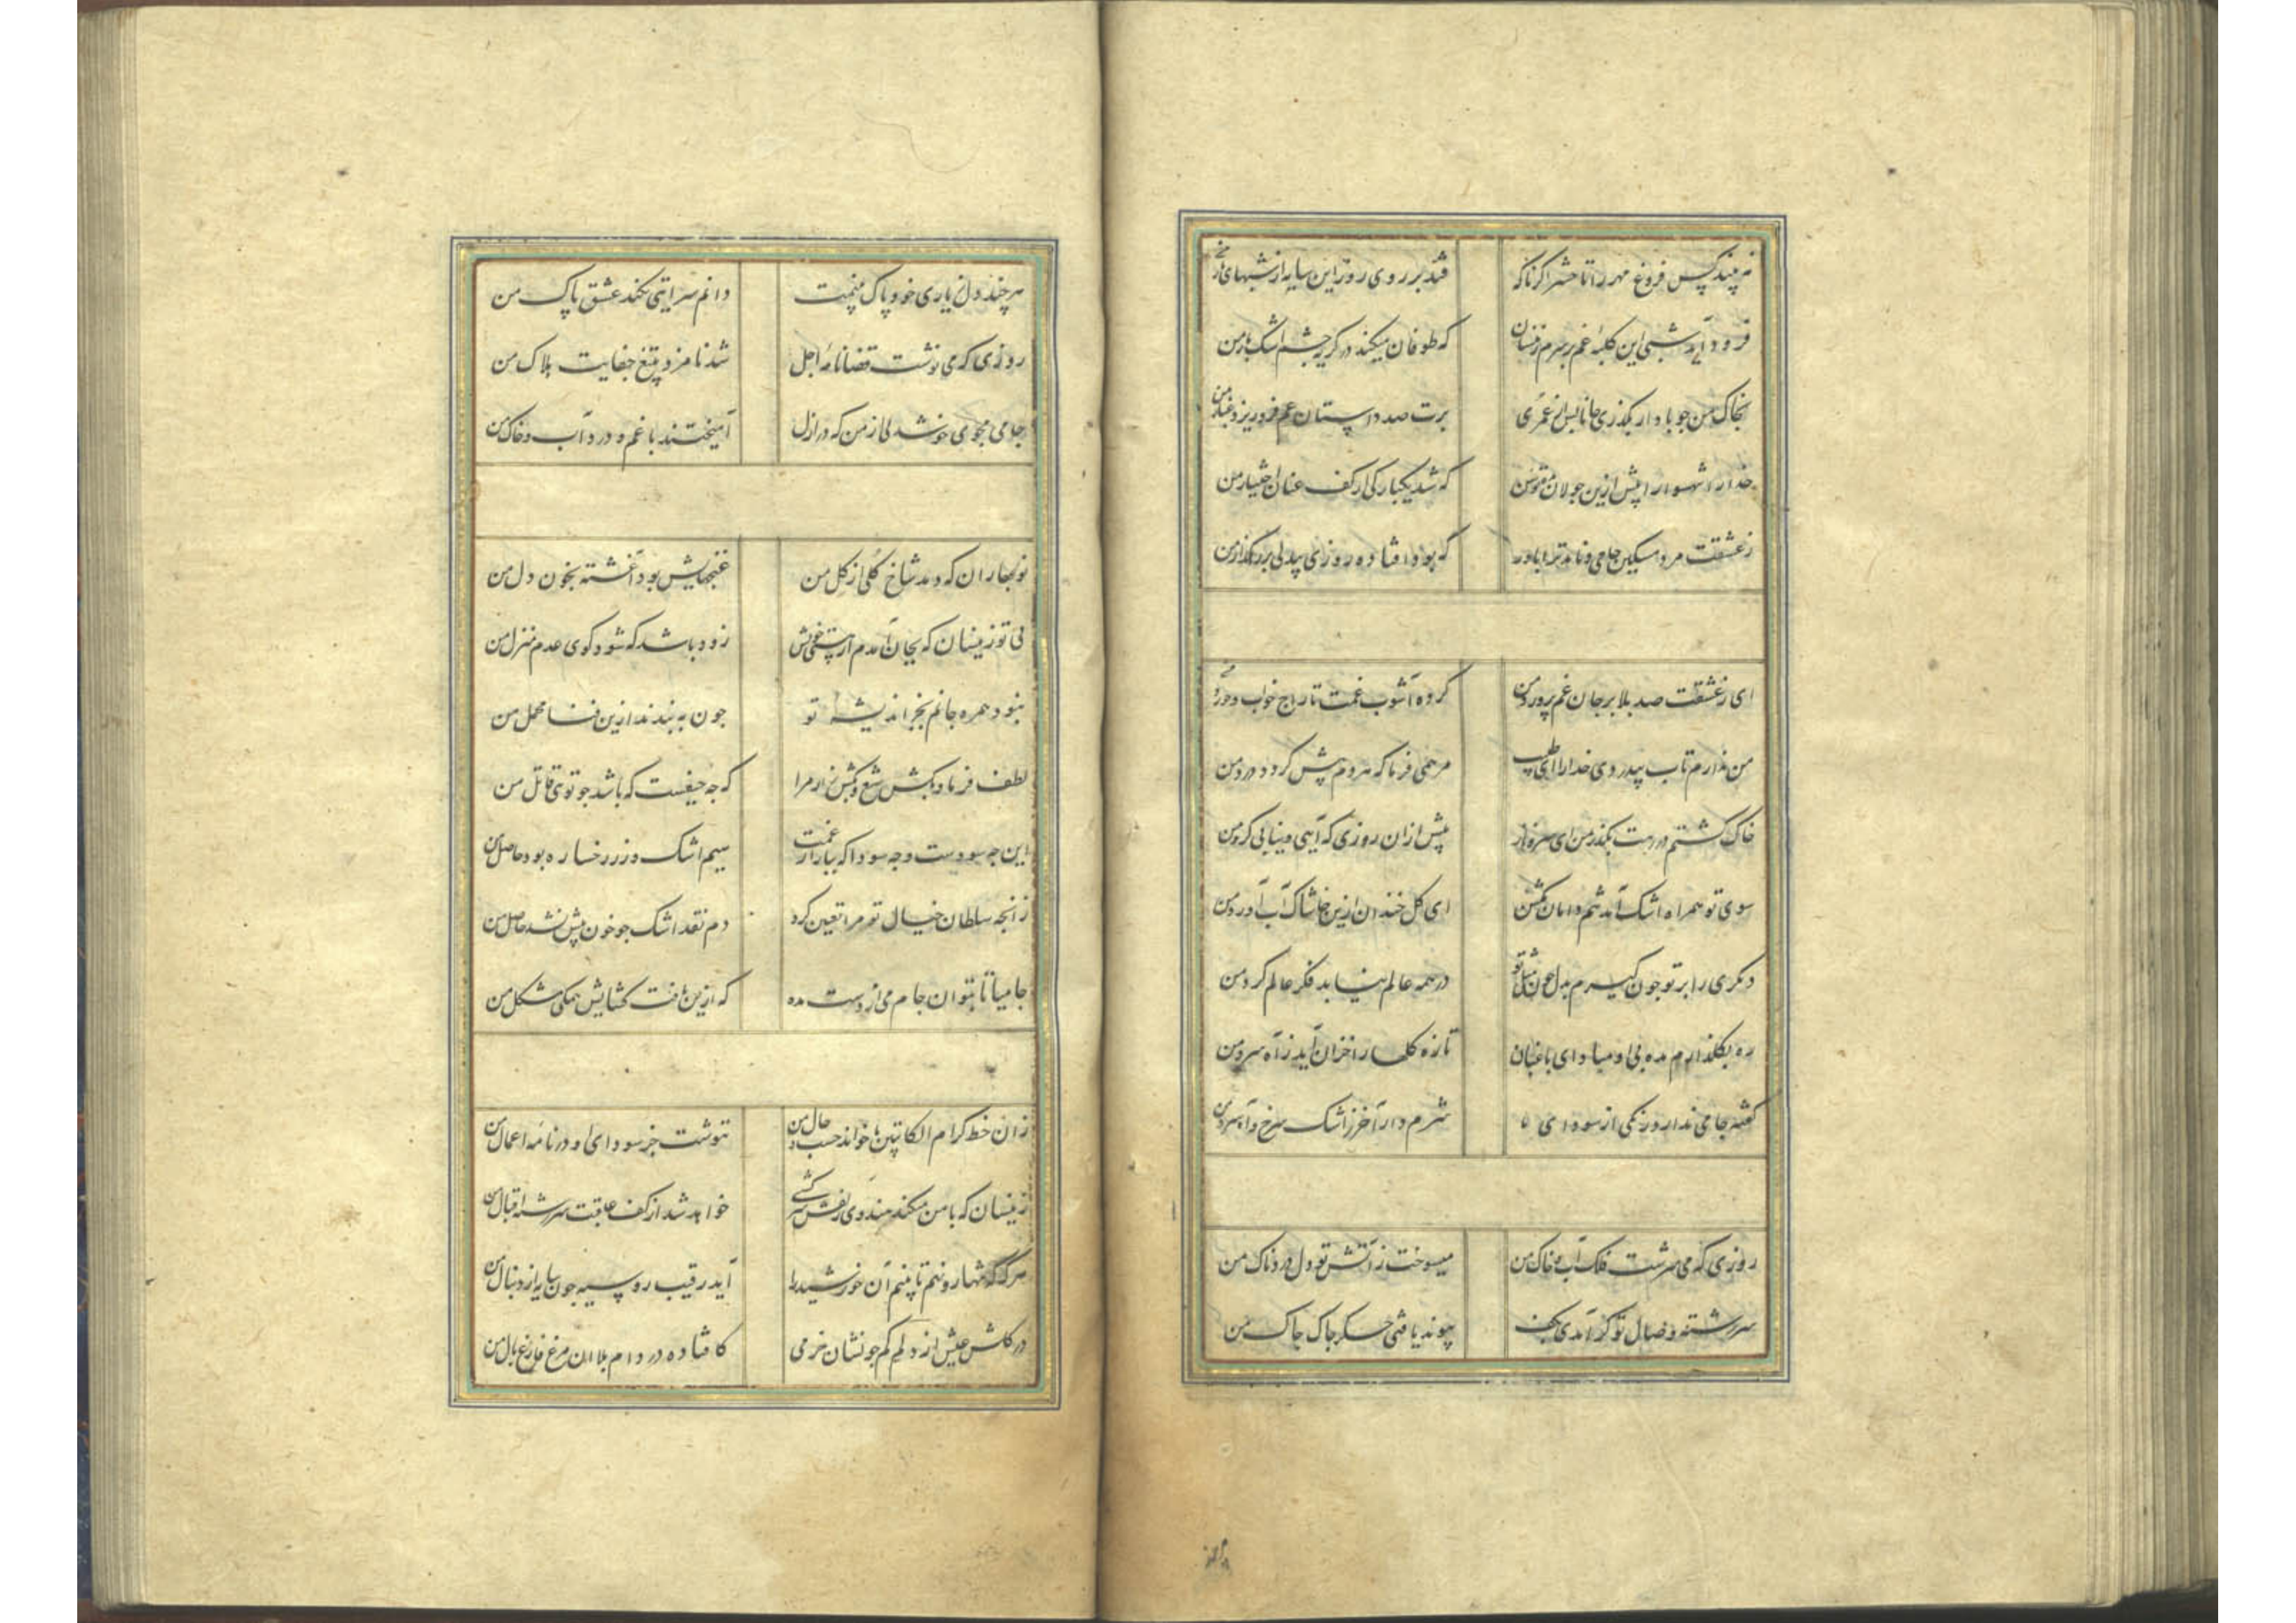 نه بیند کس فروغ مهر را تا حشر اگر ناگه
فتد بر روی روز این سایه از شبهای تار من
فرود آید شبی این کلبهٔ غم بر سرم زینسان
که طوفان میکند در گریه چشم اشکبار من
بخاک من چو باد ار بگذری جانا پس از عمری
برت صد داستان غم فرو ریزد غبار من
خدا را شهسوارا پیش ازین جولان مده توسن
که شد یکبارگی از کف عنان اختیار من
ز عشقت مرد مسکین جامی و نامد ترا باور
که بود افتاده روزی بیدلی بر رهگذار من
ای ز عشقت صد بلا بر جان غم پرورد من
کرده آشوب غمت تاراج خواب و خورد من
من ندارم تاب بیدردی خدا را ای طبیب
مرهمی فرما که هر دم بیش گردد درد من
خاک گشتم در رهت بگذر بمن ای سرو ناز
پیش از آن روزی که آیی و نیابی گرد من
سوی تو همراه اشک آمد تنم دامان مکش
ای گل خندان ازین خاشاک آب آورد من
دیگری را بر تو چون گیرم بدل چون مثل تو
در همه عالم نیابد فکر عالم گرد من
ره بگلزارم مده بی او مبادا ای باغبان
تازه گلها را خزان آید ز آه سرد من
گفته جامی ندارد رنگی از سودای ۵
شرم دار آخر ز اشک سرخ و آه سرد من
روزی که می سرشت فلک آب و خاک من
میسوخت ز آتش تو دل دردناک من
سررشته وصال تو گر آمدی بکف
پیوند یافتی جگر چاک چاک من
هر چند دل ز یاری خود پاک بینمت
دانم سرایتی نکند عشق پاک من
روزی که می نوشت قضا نامهٔ اجل
شد نامزد بتیغ جفایت هلاک من
جامی مجوی خوشدلی از من که در ازل
آمیختند با غم و درد آب و خاک من
نوبهاران که دمد شاخ گلی از گل من
غنچهایش بود آغشته بخون دل من
بی تو زینسان که بجان آمدم از هستی خویش
زود باشد که شود کوی عدم منزل من
نبود همره جانم بجز اندیشه تو
چون به بندند ازین فنا محمل من
لطف فرما و بکش تیغ و بکش زار مرا
که چه حیفست که باشد چو توی قاتل من
این چه سودست و چه سودا که ببازار غمت
سیم اشک و زر رخساره بود حاصل من
زآنچه سلطان خیال تو مرا تعیین کرد
دم نقد اشک چو خون بیش نشد حاصل من
جامیا تا بتوان جام می از دست مده
که ازین یافت گشایش همگی مشکل من
زان خط کرام الکاتبین تا خواند حسب حال من
ننوشت جز سودای او در نامهٔ اعمال من
زینسان که با من میکند هندوی زلفش سرکشی
خواهد شد از کف عاقبت سررشته اقبال من
هرگه که تنها رو نهم تا بینم آن خورشید را
آید رقیب روسیه چون سایه از دنبال من
در گلشن عیش از دلم کم جو نشان خرمی
کافتاده در دام بلا آن مرغ فارغ بال من